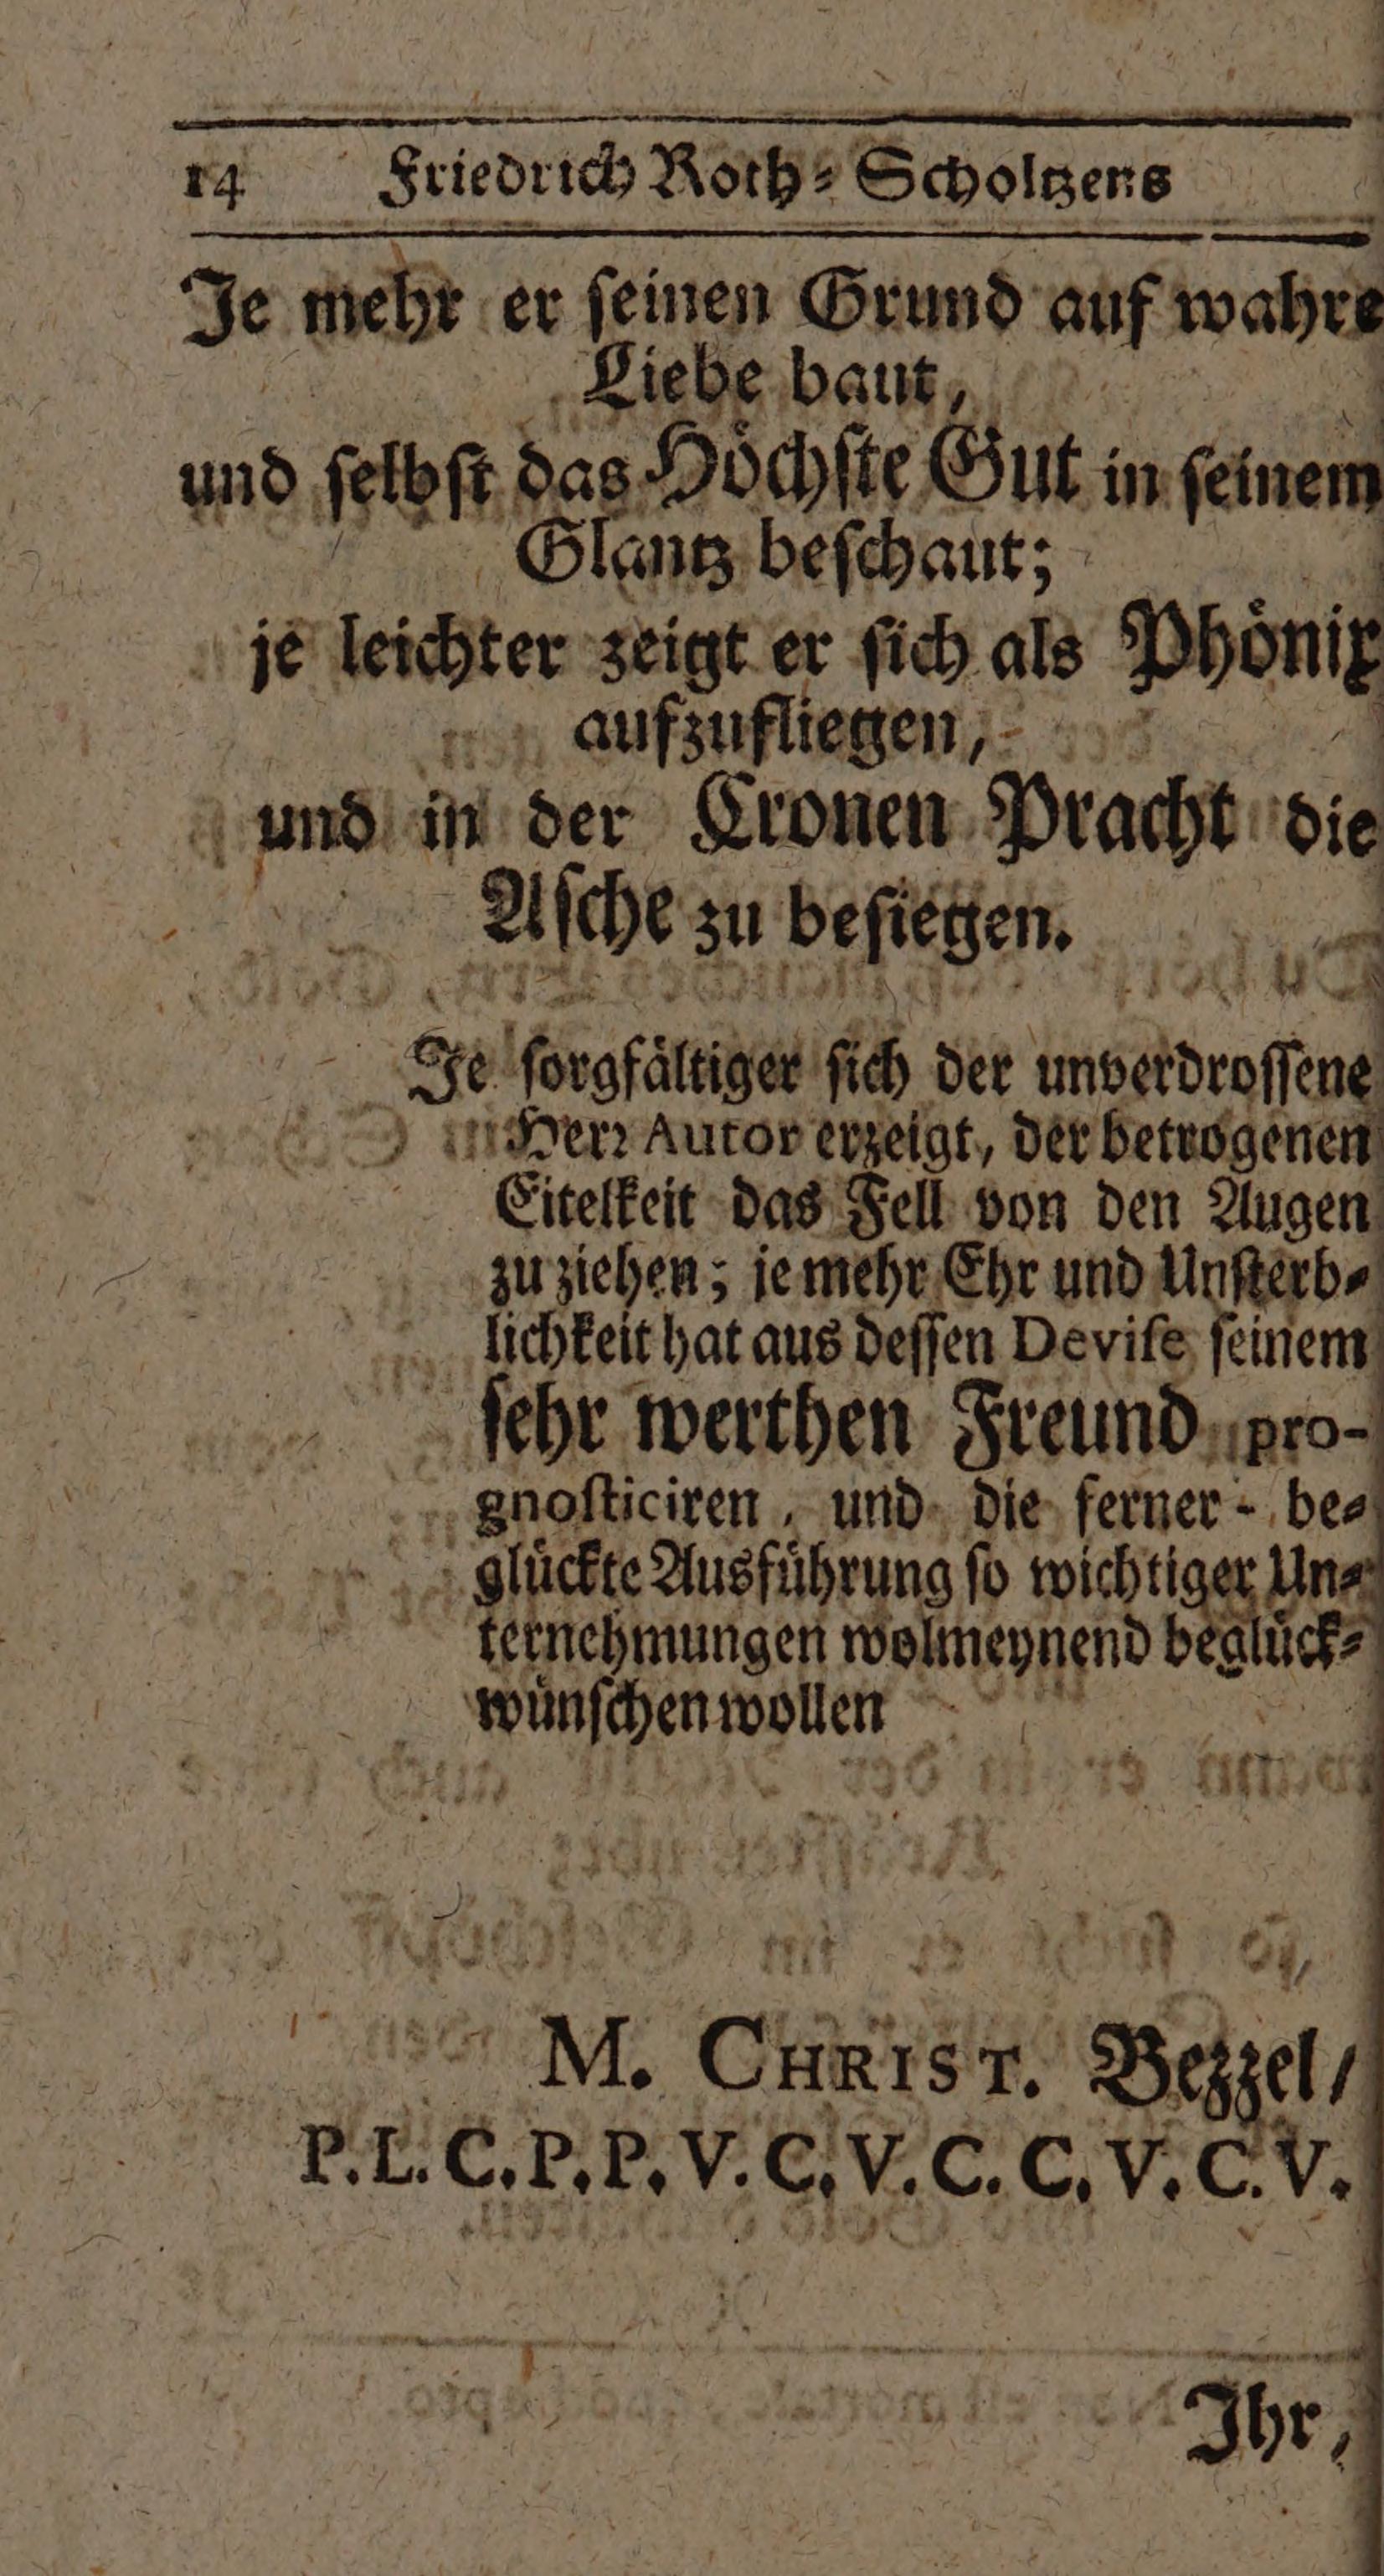 14 Friedrich Roth⸗Scholtzens
Je mehr er ſeinen Grund auf wahre
Liebe baut,
und ſelbſt das Höchſte Gut in ſeinem
Glantz beſchaut;
je leichter zeigt er ſich als Phönix
aufzufliegen,
und in der Cronen Pracht die
Aſche zu beſiegen.
Je ſorgfältiger ſich der unverdroſſene
Herꝛ Autor erzeigt, der betrogenen
Eitelkeit das Fell von den Augen
zu ziehen; je mehr Ehr und Unſterb⸗
lichkeit hat aus deſſen Deviſe ſeinem
ſehr werthen Freund pro-
gnoſticiren, und die ferner - be⸗
glückte Ausführung ſo wichtiger Un⸗
ternehmungen wolmeynend beglück⸗
wünſchen wollen
M. CHRIST. Bezzel/
P. L. C. P. P. V. C. V. C. C. V. C. V.
Ihr,